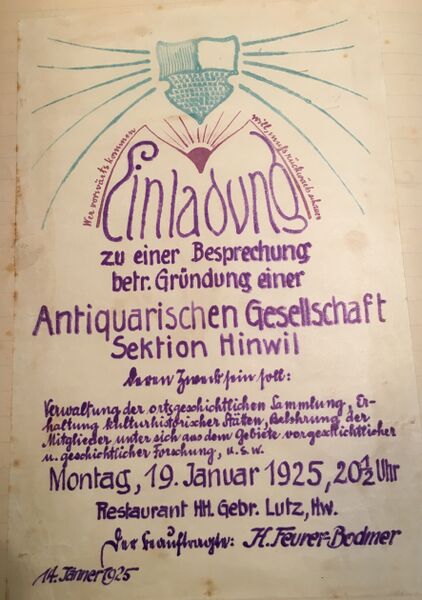 Wer vorwärts kommen
will, muß rückwärts schauen
Einladung
zu einer Besprechung
betr. Gründung einer
Antiquarischen Gesellschaft
Sektion Hinwil
deren Zweck sein soll:
Verwaltung der ortsgeschichtlichen Sammlung, Er-
haltung kulturhistorischer Stäten, Belehrung der
Mitglieder unter sich aus dem Gebiete vorgeschichtlicher
u. geschichtlicher Forschung, u.s.w.
Montag, 19. Januar 1925, 20 1/2 Uhr
Restaurant HH. Gebr. Lutz, Hw.
Der Beauftragte: H. Feurer-Bodmer
14. Jänner 1925